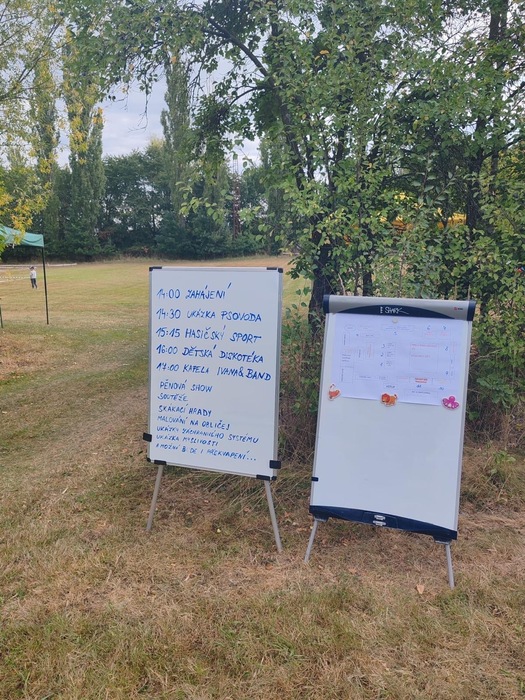 14:00 ZAHÁJENÍ
14:30 UKÁZKA PSOVODA
15:15 HASIČSKÝ SPORT
16:00 DĚTSKÁ DISKOTÉKA
17:00 KAPELA IVANA&BAND
PĚNOVÁ SHOW
SOUTĚŽE
SKÁKACÍ HRADY
MALOVÁNÍ NA OBLIČEJ
UKÁZKA ZÁCHRANNÉHO SYSTÉMU
UKÁZKA MYSLIVOSTI
A MOŽNÁ BUDE I PŘEKVAPENÍ...